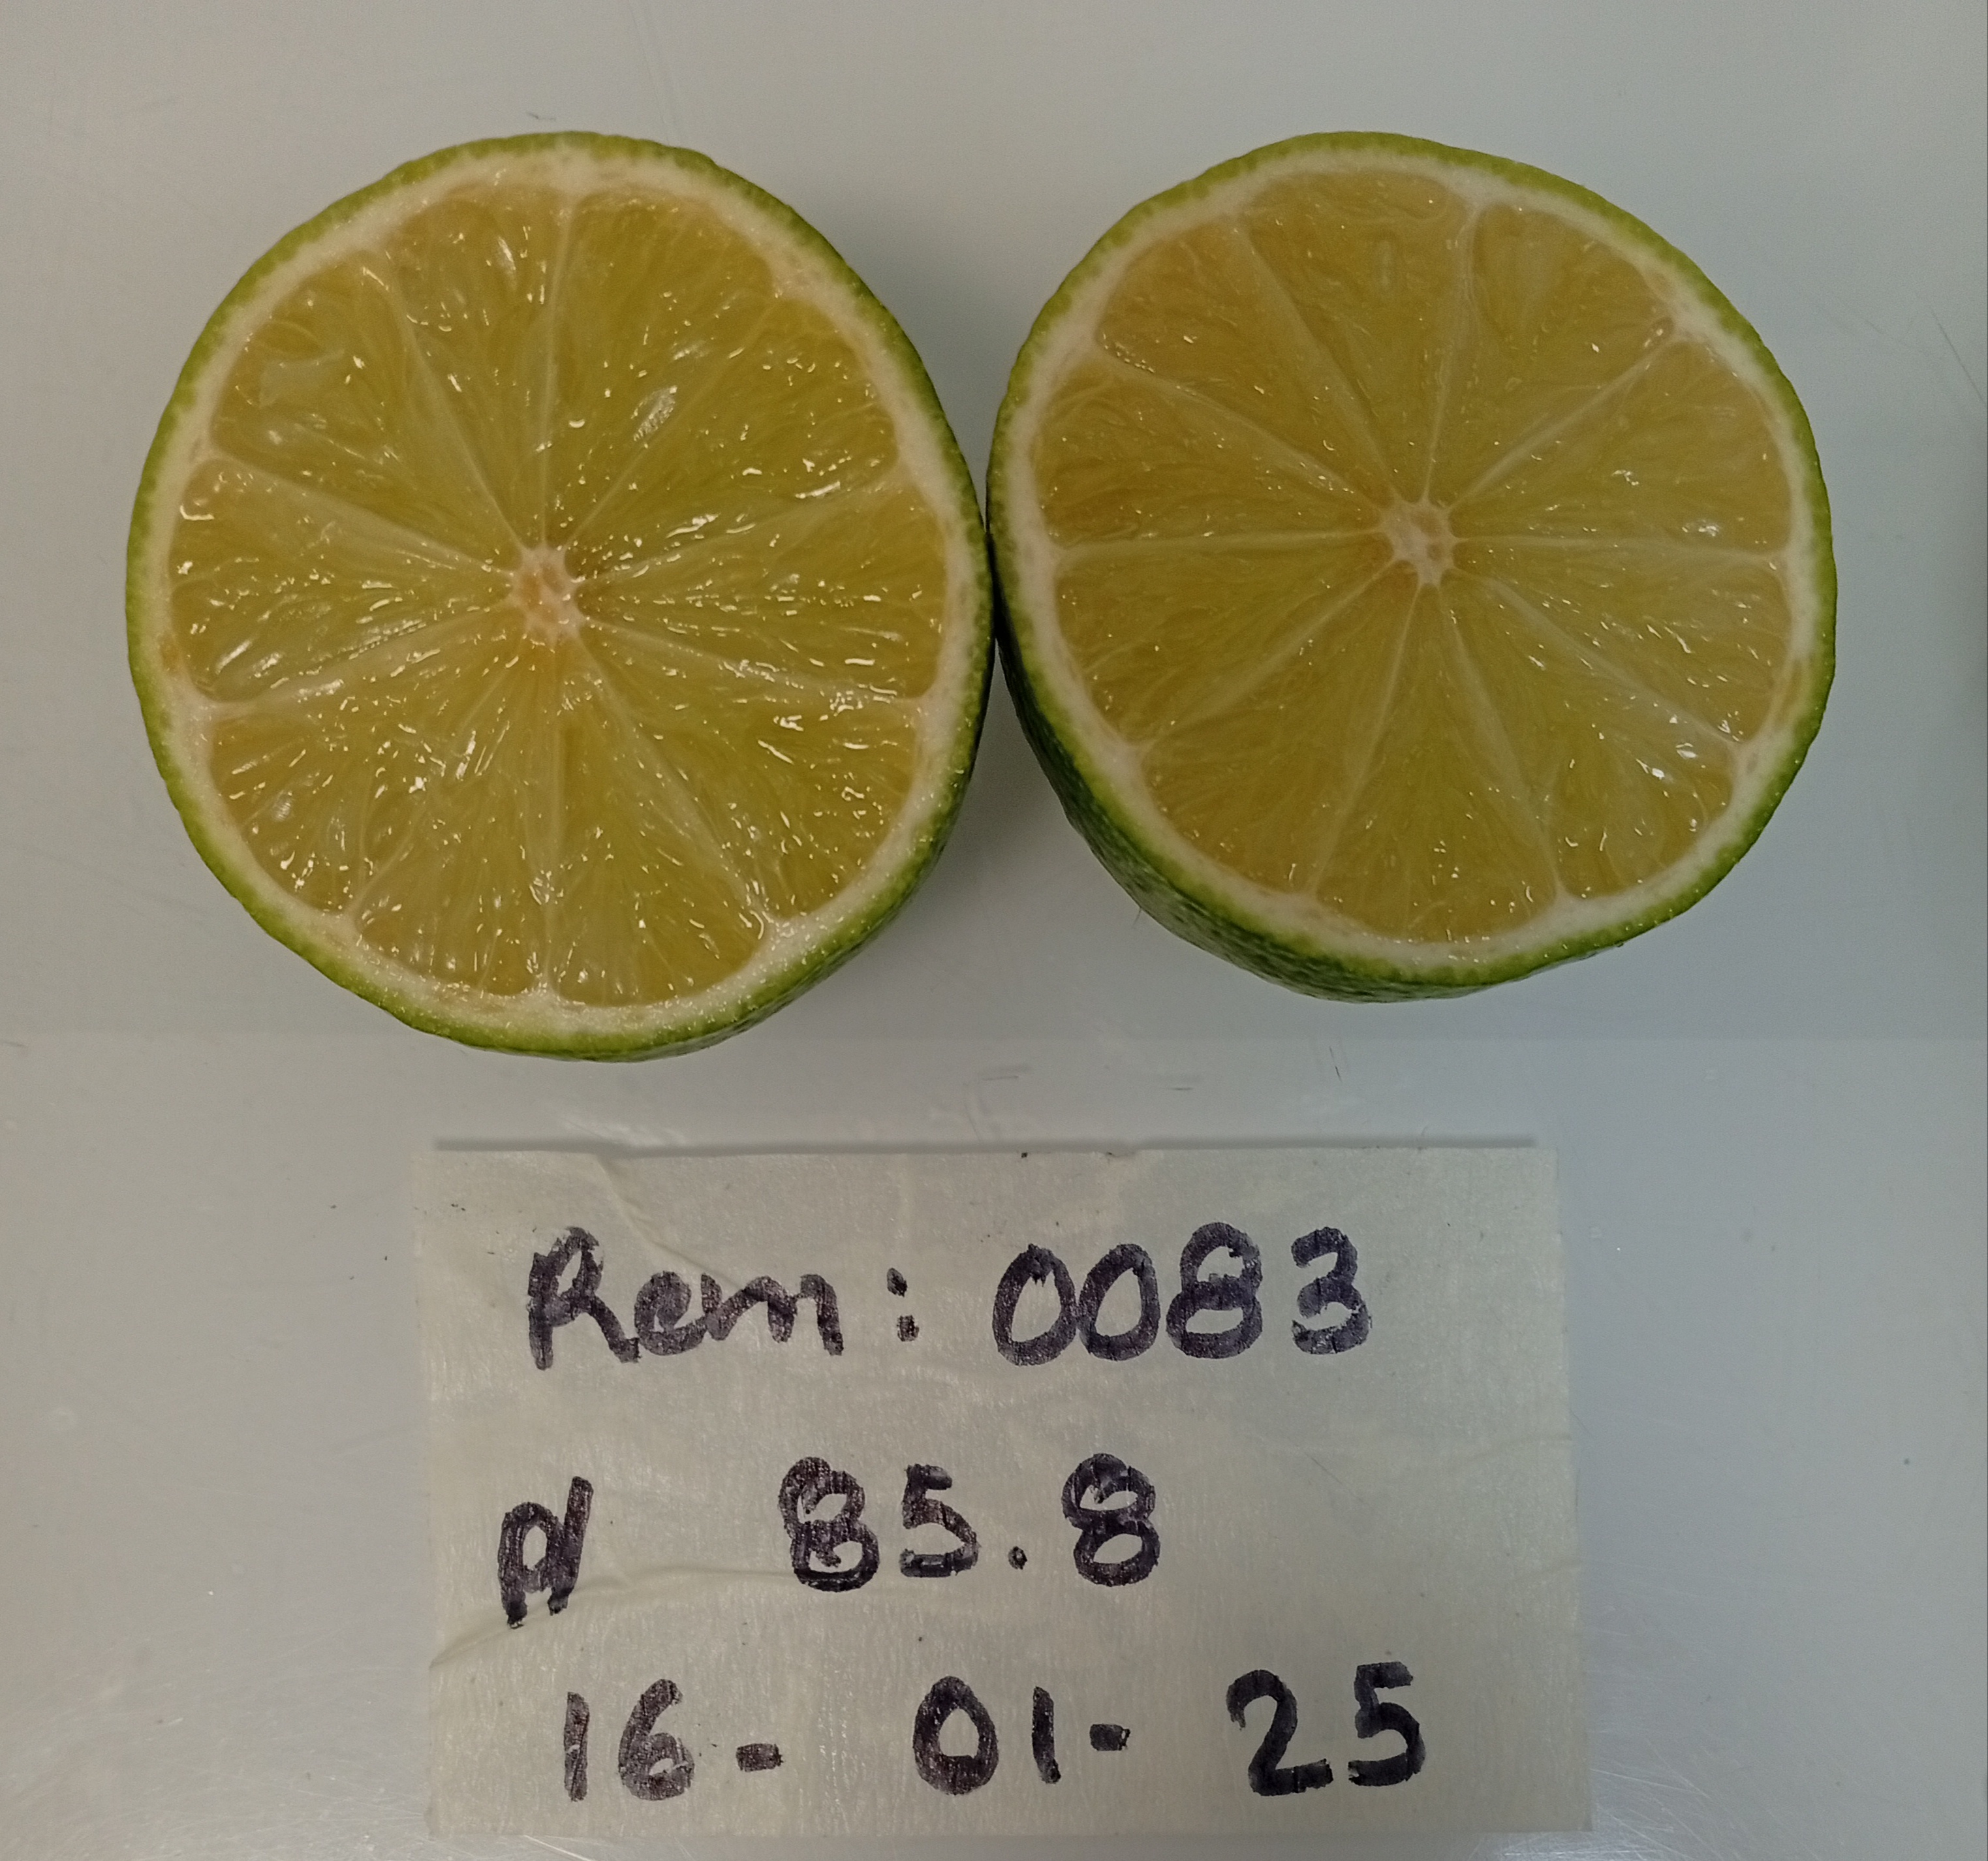 Rem: 0083
85.8
16-01-25